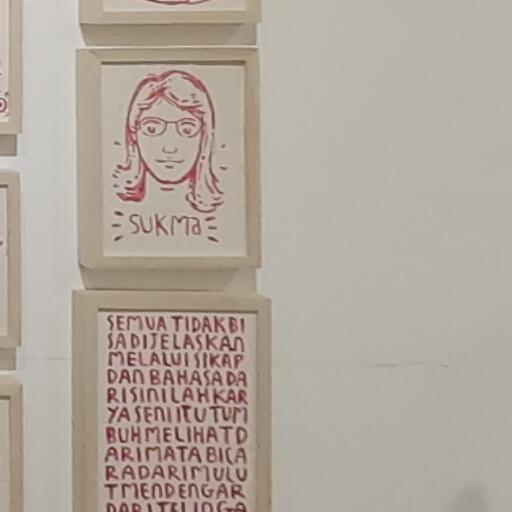 SUKMa
SEMUA TIDAK BI
SA DIJELASKAN
MELALUI SIKAP
DAN BAHASA DA
RI SINILAH KAR
YA SENI ITU TUM
BUH MELIHAT D
ARI MATA BICA
RA DARI MULU
T MENDENGAR
DARI TELINGA